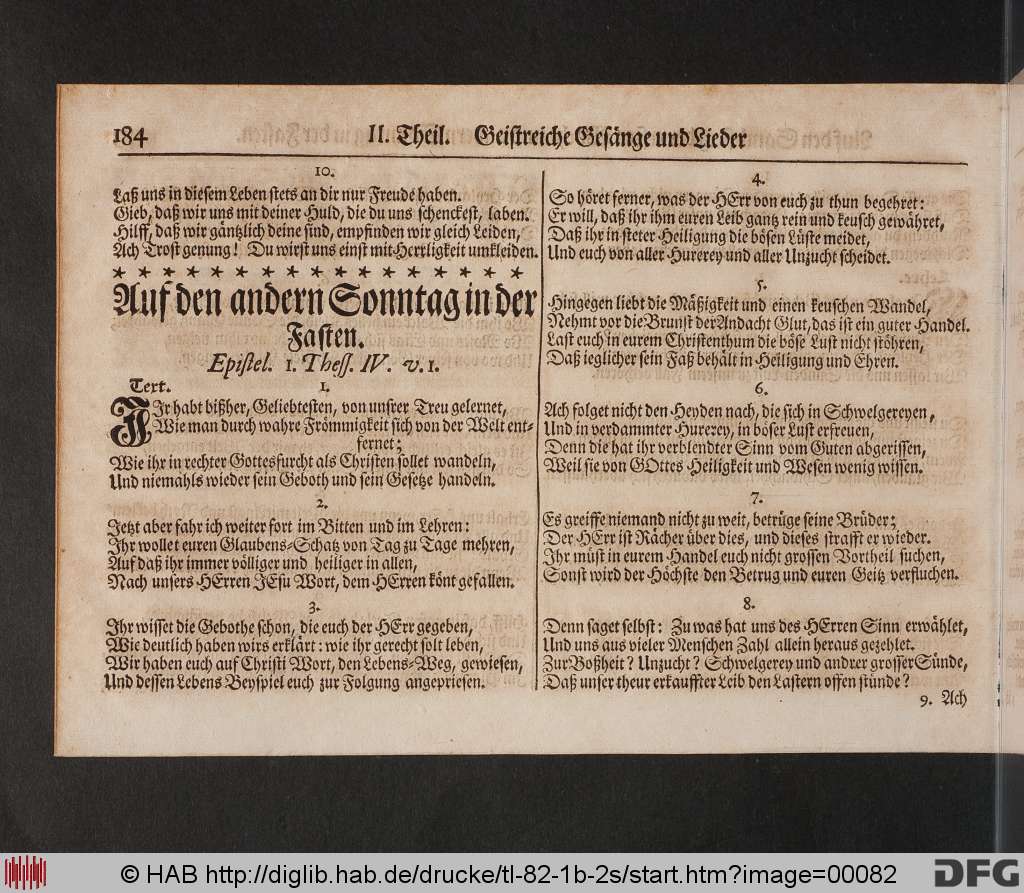 184 II. Theil. Geistreiche Gesänge und Lieder
10.
Laß uns in diesem Leben stets an dir nur Freude haben.
Gieb, daß wir uns mit deiner Huld, die du uns schenckest, laben.
Hilff, daß wir gäntzlich deine sind, empfinden wir gleich Leiden,
Ach Trost genung! Du wirst uns einst mit Herrligkeit umkleiden.
* * * * * * * * * * * * * * * * * *
Auf den andern Sonntag in der
Fasten.
Epistel. 1. Thess. IV. v. 1.
Text. 1.
IHr habt bißher, Geliebtesten, von unsrer Treu gelernet,
Wie man durch wahre Frömmigkeit sich von der Welt ent-
fernet;
Wie ihr in rechter Gottesfurcht als Christen sollet wandeln,
Und niemahls wieder sein Geboth und sein Gesetze handeln.
2.
Jetzt aber fahr ich weiter fort im Bitten und im Lehren:
Ihr wollet euren Glaubens-Schatz von Tag zu Tage mehren,
Auf daß ihr immer völliger und heiliger in allen,
Nach unsers HErren JEsu Wort, dem HErren könt gefallen.
3.
Ihr wisset die Gebothe schon, die euch der HErr gegeben,
Wie deutlich haben wirs erklärt: wie ihr gerecht solt leben,
Wir haben euch auf Christi Wort, den Lebens-Weg, gewiesen,
Und dessen Lebens Beyspiel euch zur Folgung angepriesen.
4.
So höret ferner, was der HErr von euch zu thun begehret:
Er will, daß ihr ihm euren Leib gantz rein und keusch gewähret,
Daß ihr in steter Heiligung die bösen Lüste meidet,
Und euch von aller Hurerey und aller Unzucht scheidet.
5.
Hingegen liebt die Mäßigkeit und einen keuschen Wandel,
Nehmt vor die Brunst der Andacht Glut, das ist ein guter Handel.
Last euch in eurem Christenthum die böse Lust nicht stöhren,
Daß ieglicher sein Faß behält in Heiligung und Ehren.
6.
Ach folget nicht den Heyden nach, die sich in Schwelgereyen,
Und in verdammter Hurerey, in böser Lust erfreuen,
Denn die hat ihr verblendter Sinn vom Guten abgerissen,
Weil sie von GOttes Heiligkeit und Wesen wenig wissen.
7.
Es greiffe niemand nicht zu weit, betrüge seine Brüder;
Der HErr ist Rächer über dies, und dieses strafft er wieder.
Ihr müst in eurem Handel euch nicht grossen Vortheil suchen,
Sonst wird der Höchste den Betrug und euren Geitz verfluchen.
8.
Denn saget selbst: Zu was hat uns des HErren Sinn erwählet,
Und uns aus vieler Menschen Zahl allein heraus gezehlet.
Zur Boßheit? Unzucht? Schwelgerey und andrer grosser Sünde,
Daß unser theur erkauffter Leib den Lastern offen stünde?
9. Ach
© HAB http://diglib.hab.de/drucke/tl-82-1b-2s/start.htm?image=00082
DFG